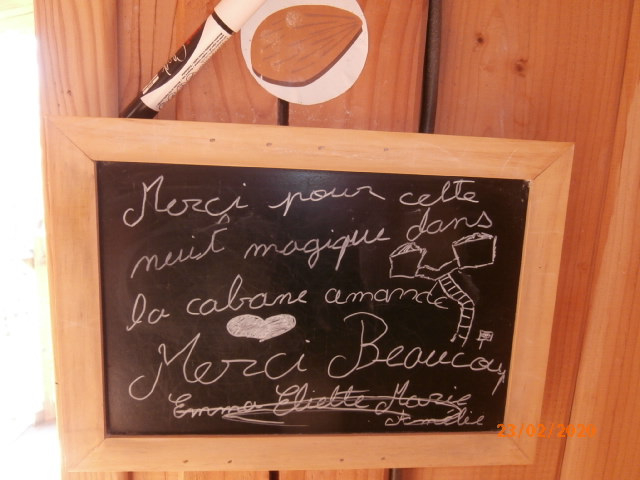 Merci pour cette
nuit magique dans
la cabane amande
Merci Beaucoup
Emma Eliette Marie
Amélie
23/02/2020